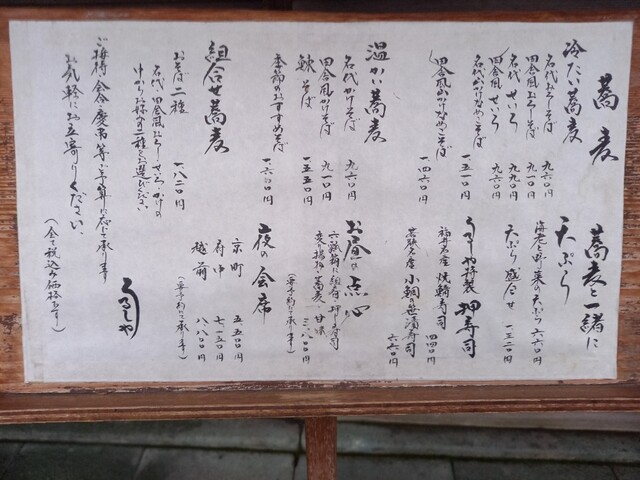 蕎麦
冷たい蕎麦
名代おろしそば 九六〇円
田舎風おろしそば 九一〇円
名代せいろ 九九〇円
田舎風せいろ 九六〇円
名代かけなやこそば 一五一〇円
田舎風かけなやこそば 一四六〇円
温かい蕎麦
名代かけそば 九六〇円
田舎風かけそば 九一〇円
鰊そば 一五五〇円
季節のおすすめそば 一六〇〇円
組合せ蕎麦
おそば二種 一八二〇円
名代・田舎風、おろし・せいろ・かけの
中からお好みの二種をお選びください
ご接待、会食、慶弔等ご予算に応じて承ります
お気軽にお立寄りください
蕎麦と一緒に
天ぷら
海老と野菜の天ぷら 六六〇円
天ぷら盛合せ 一三二〇円
うるしや特製 押寿司
福井名産 焼鯖寿司 四四〇円
若狭名産 小鯛の笹漬寿司 六六〇円
お昼の点心
六瓢箱に組肴、押し寿司
変り揚物、蕎麦、甘味 三八〇〇円
(要予約にて承ります)
夜の会席
京町 五五〇〇円
府中 七一五〇円
越前 八八〇〇円
(要予約にて承ります)
うるしや
(全て税込み価格です)